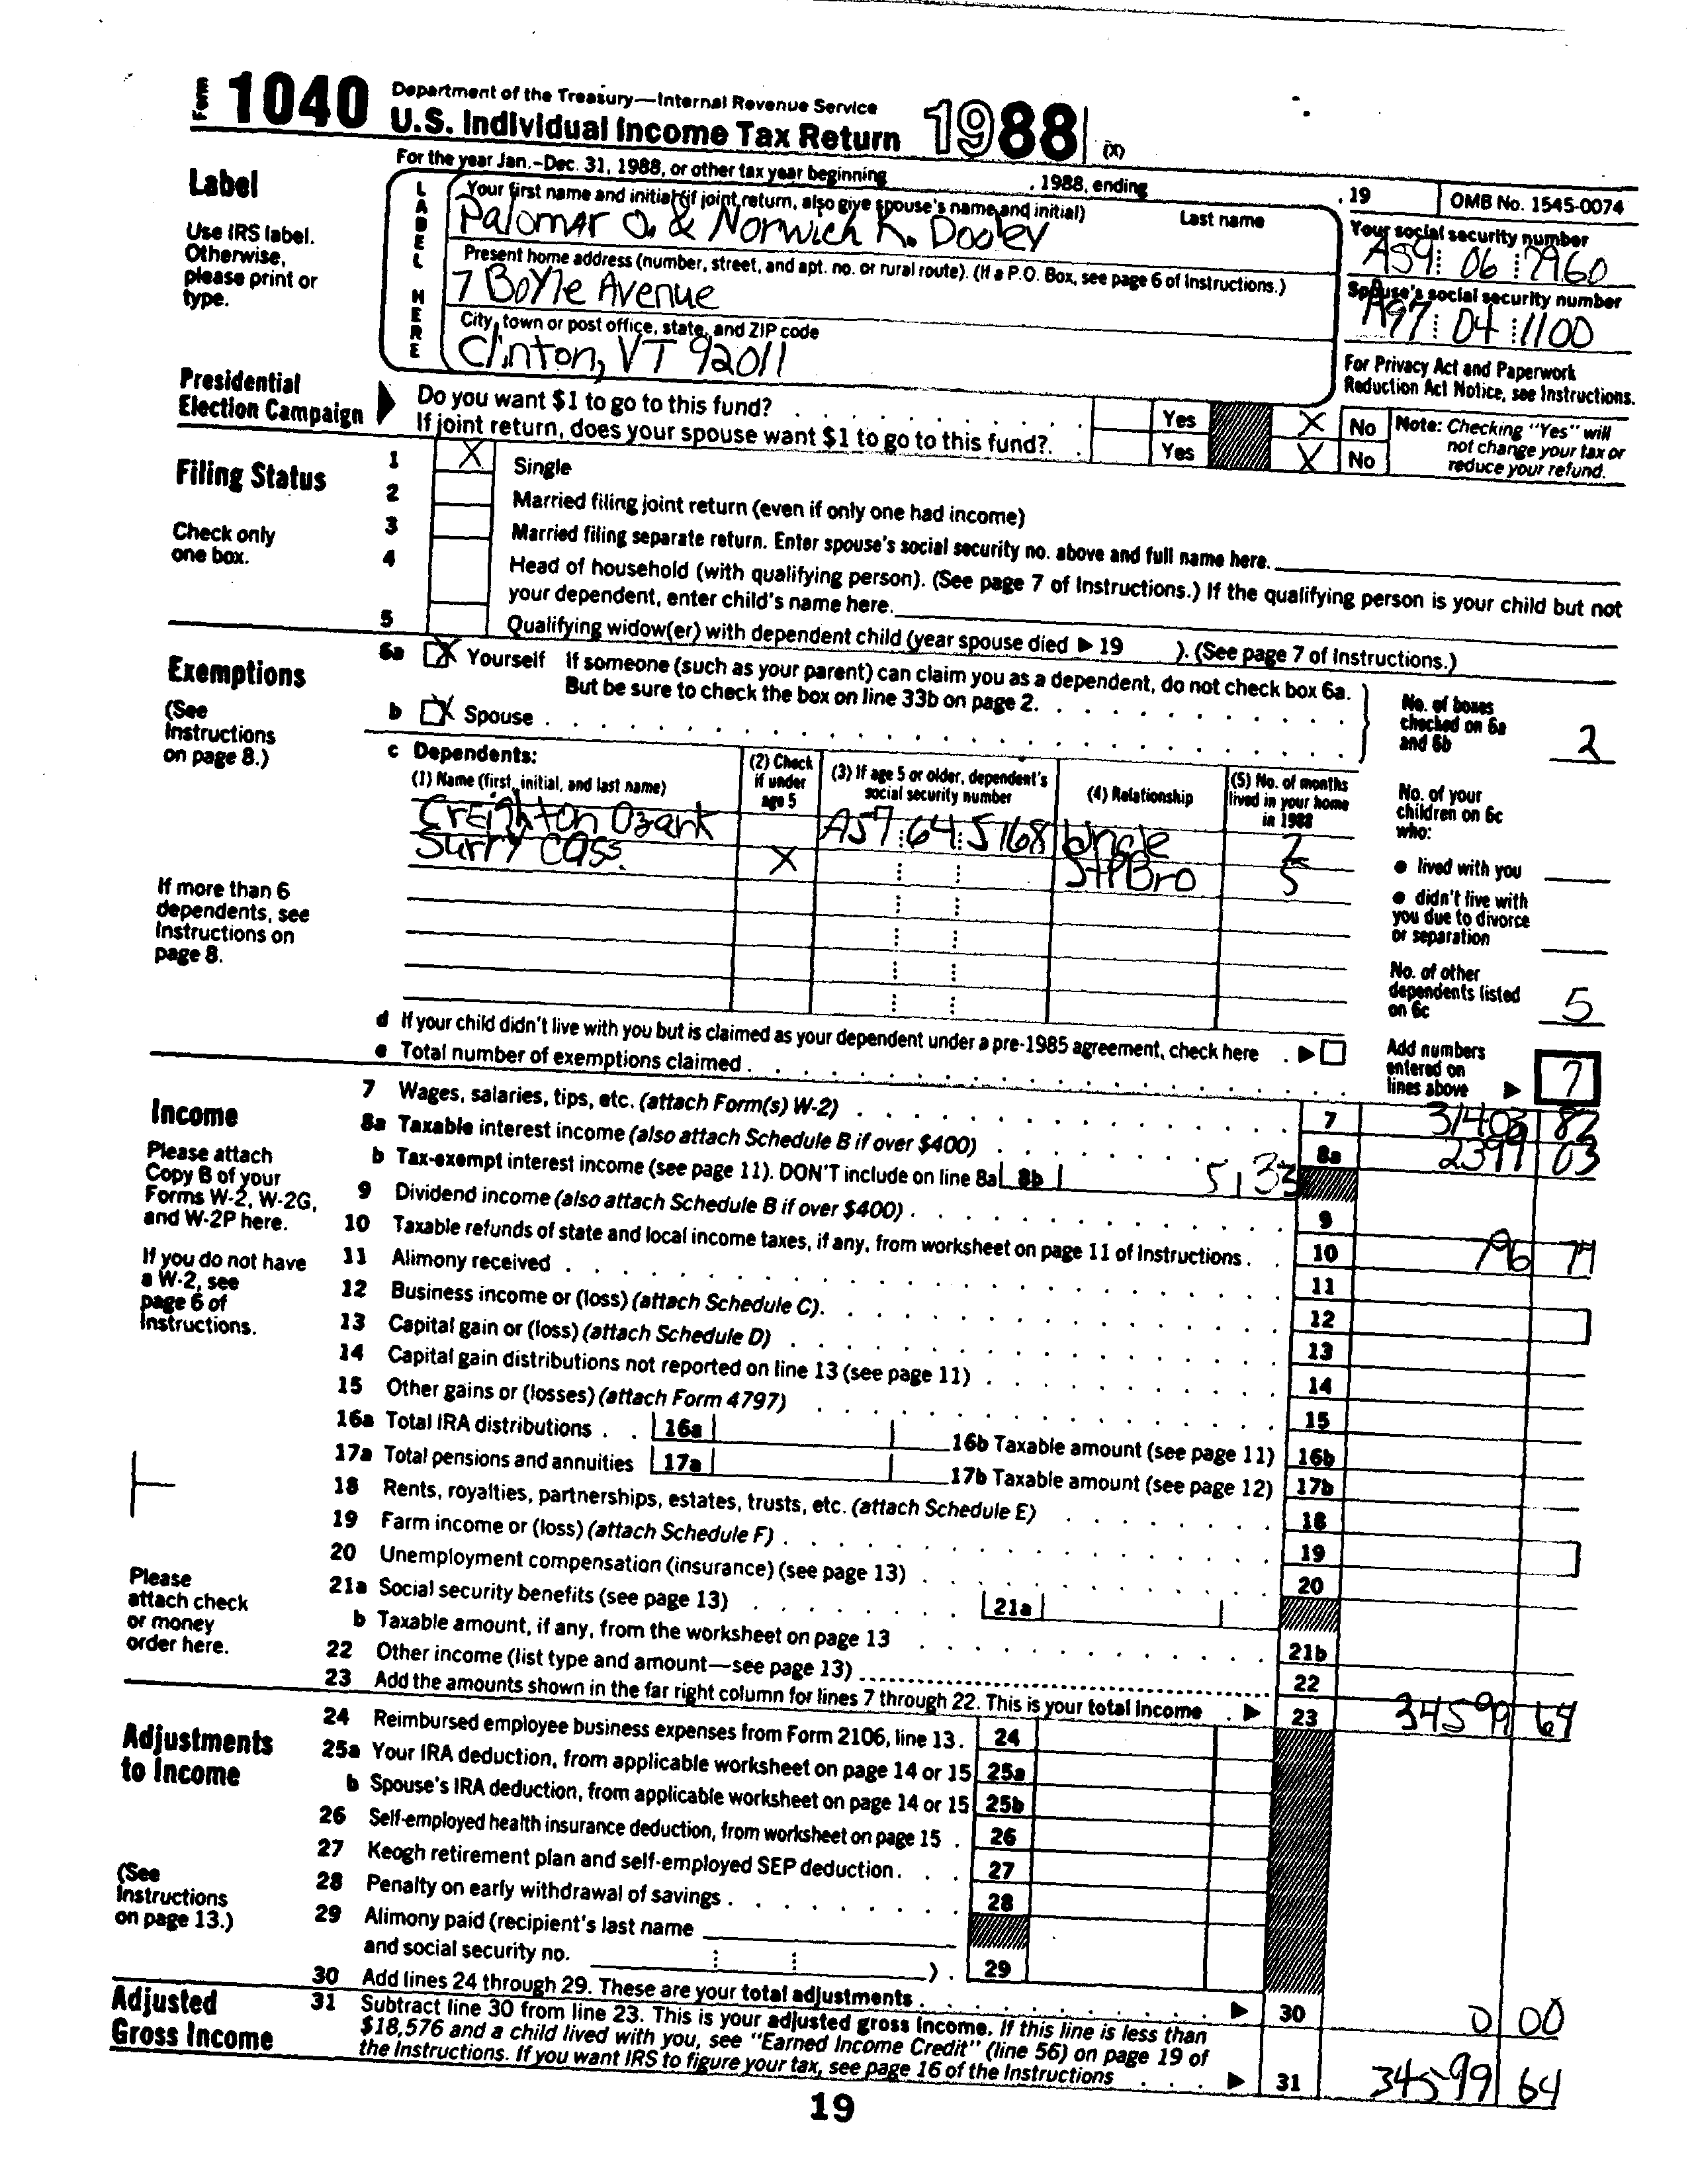 Form 1040 Department of the Treasury—Internal Revenue Service
U.S. Individual Income Tax Return 1988 (X)
For the year Jan.–Dec. 31, 1988, or other tax year beginning , 1988, ending , 19 OMB No. 1545-0074
Label
Use IRS label. Otherwise, please print or type.
LABEL HERE
Your first name and initial (if joint return, also give spouse's name and initial) Last name
Palomar O. & Norwich K. Dooley
Your social security number
A59 06 7960
Present home address (number, street, and apt. no. or rural route). (If a P.O. Box, see page 6 of Instructions.)
7 Boyle Avenue
Spouse's social security number
A97 04 1100
City, town or post office, state, and ZIP code
Clinton, VT 92011
For Privacy Act and Paperwork Reduction Act Notice, see Instructions.
Presidential Election Campaign
Do you want $1 to go to this fund? Yes X No
If joint return, does your spouse want $1 to go to this fund? Yes X No
Note: Checking "Yes" will not change your tax or reduce your refund.
Filing Status
Check only one box.
1 X Single
2 Married filing joint return (even if only one had income)
3 Married filing separate return. Enter spouse's social security no. above and full name here.
4 Head of household (with qualifying person). (See page 7 of Instructions.) If the qualifying person is your child but not
your dependent, enter child's name here.
5 Qualifying widow(er) with dependent child (year spouse died ▶ 19 ). (See page 7 of Instructions.)
Exemptions
(See Instructions on page 8.)
6a X Yourself If someone (such as your parent) can claim you as a dependent, do not check box 6a.
But be sure to check the box on line 33b on page 2.
b X Spouse
No. of boxes checked on 6a and 6b 2
c Dependents:
(1) Name (first, initial, and last name) (2) Check if under age 5 (3) If age 5 or older, dependent's social security number (4) Relationship (5) No. of months lived in your home in 1988
Creighton Ozark A57 64 5168 Uncle
Surry Cass. X StPBro 5
No. of your children on 6c who:
● lived with you
● didn't live with you due to divorce or separation
No. of other dependents listed on 6c 5
If more than 6 dependents, see Instructions on page 8.
d If your child didn't live with you but is claimed as your dependent under a pre-1985 agreement, check here ▶
e Total number of exemptions claimed
Add numbers entered on lines above ▶ 7
Income
Please attach Copy B of your Forms W-2, W-2G, and W-2P here.
If you do not have a W-2, see page 6 of Instructions.
Please attach check or money order here.
7 Wages, salaries, tips, etc. (attach Form(s) W-2) 7 31403 82
8a Taxable interest income (also attach Schedule B if over $400) 8a 2399 03
b Tax-exempt interest income (see page 11). DON'T include on line 8a 8b 5 33
9 Dividend income (also attach Schedule B if over $400) 9
10 Taxable refunds of state and local income taxes, if any, from worksheet on page 11 of Instructions 10 796 79
11 Alimony received 11
12 Business income or (loss) (attach Schedule C) 12
13 Capital gain or (loss) (attach Schedule D) 13
14 Capital gain distributions not reported on line 13 (see page 11) 14
15 Other gains or (losses) (attach Form 4797) 15
16a Total IRA distributions 16a 16b Taxable amount (see page 11) 16b
17a Total pensions and annuities 17a 17b Taxable amount (see page 12) 17b
18 Rents, royalties, partnerships, estates, trusts, etc. (attach Schedule E) 18
19 Farm income or (loss) (attach Schedule F) 19
20 Unemployment compensation (insurance) (see page 13) 20
21a Social security benefits (see page 13) 21a
b Taxable amount, if any, from the worksheet on page 13 21b
22 Other income (list type and amount—see page 13) 22
23 Add the amounts shown in the far right column for lines 7 through 22. This is your total income ▶ 23 34599 64
Adjustments to Income
(See Instructions on page 13.)
24 Reimbursed employee business expenses from Form 2106, line 13. 24
25a Your IRA deduction, from applicable worksheet on page 14 or 15 25a
b Spouse's IRA deduction, from applicable worksheet on page 14 or 15 25b
26 Self-employed health insurance deduction, from worksheet on page 15 26
27 Keogh retirement plan and self-employed SEP deduction 27
28 Penalty on early withdrawal of savings 28
29 Alimony paid (recipient's last name
and social security no. ) 29
30 Add lines 24 through 29. These are your total adjustments ▶ 30 0 00
Adjusted Gross Income
31 Subtract line 30 from line 23. This is your adjusted gross income. If this line is less than
$18,576 and a child lived with you, see "Earned Income Credit" (line 56) on page 19 of
the Instructions. If you want IRS to figure your tax, see page 16 of the Instructions ▶ 31 34599 64
19